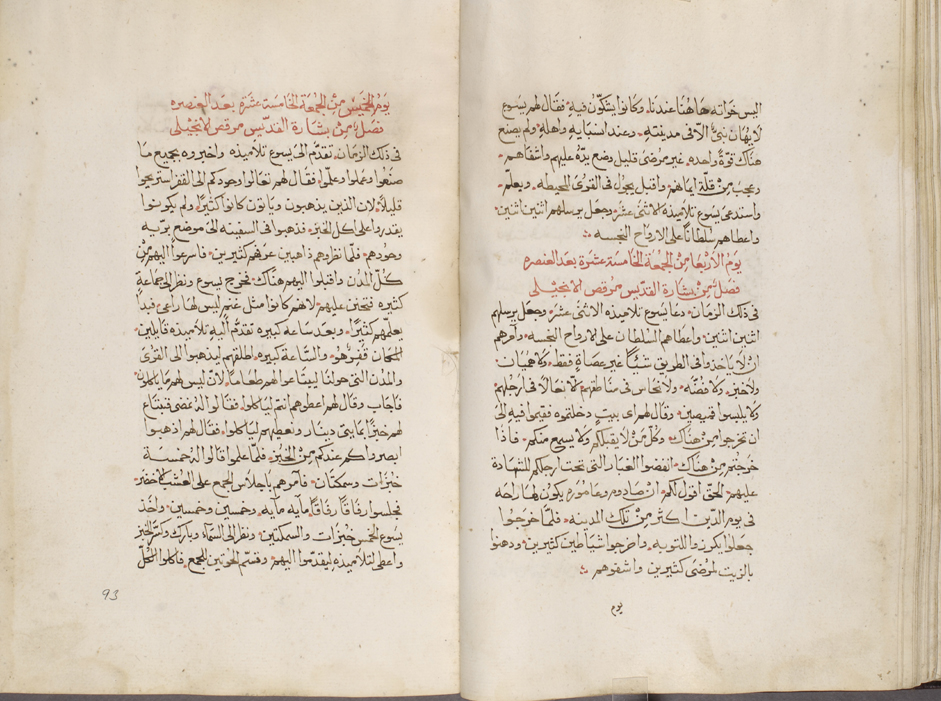 اليس خواته هاهنا عندنا، وكانوا يشكّون فيه فقال لهم يسوع
لا يهان نبيٌّ الّا في مدينته وعند انسبايه واهله ولم يصنع
هناك قوّةً واحده غير مرضى قليل وضع يدَه عليهم واشفاهم
وعجب من قلّة ايمانهم واقبل يجول في القرى المحيطه ويعلّم
واستدعى يسوع تلاميذه الاثنى عشر وجعل يرسلهم اثنين اثنين
واعطاهم سُلطانًا على الارواح النجسه
يوم الاربعا من الجمعة الخامسة عشرة بعد العنصره
فصلٌ من بشارة القديس مرقص الانجيلى
في ذلك الزمان دعا يسوع تلاميذه الاثنى عشر وجعل يرسلهم
اثنين اثنين واعطاهم السلطان على الارواح النجسه وامرهم
ان لا ياخذوا في الطريق شيًا غير عصاةٍ فقط ولا هميان
ولا خبز ولا فضّه ولا نحاس في مناطقهم لكن نعالًا في ارجلهم
ولا يلبسوا قميصين وقال لهم اى بيتٍ دخلتموه فقيموا فيه الى
ان تخرجوا من هناك وكلّ من لا يقبلكم ولا يسمع منكم فاذا
خرجتم من هناك انفضوا الغبار التى تحت ارجلكم للشهادة
عليهم الحقّ اقول لكم ان صادوم وعاموره يكون لهما راحه
في يوم الدين اكثر من تلك المدينه فلمّا خرجوا
جعلوا يكرزوا للتوبه واخرجوا شياطين كثيرين ودهنوا
بالزيت لمرضى كثيرين واشفوهم
يوم
يوم الخميس من الجمعة الخامسة عشرة بعد العنصره
فصلٌ من بشارة القديس مرقص الانجيلى
في ذلك الزمان تقدّم الى يسوع تلاميذه واخبروه بجميع ما
صنعوا وعملوا وعلّموا فقال لهم تعالوا وحدكم الى القفر استريحوا
قليلًا لان الذين يذهبون وياتون كانوا كثيرًا ولم يكونوا
يقدروا على اكل الخبز فذهبوا في السفينه الى موضع بريه
وحدهم فلمّا نظروهم ذاهبين عرفهم كثيرين فاسرعوا اليهم من
كلّ المدن واقبلوا اليهم هناك فخرج يسوع ونظر الى جماعة
كثيره فتحنن عليهم لانهم كانوا مثل غنم ليس لها راعى فبدا
يعلّمهم كثيرًا وبعد ساعه كبيره تقدّم اليه تلاميذه قايلين
المكان قفر هو والساعة كبيره اطلقهم ليذهبوا الى القرى
والمدن التى حولنا ليبتاعوا لهم طعامًا لان ليس لهم ما ياكلون
فاجاب وقال لهم اعطوهم انتم لياكلوا فقالوا له نمضى فنبتاع
لهم خبزًا بمايتى دينار ونعطيهم لياكلوا فقال لهم اذهبوا
ابصروا كم عندكم من الخبز فلمّا علموا قالوا له خمسة
خبزات وسمكتان فامرهم باجلاس الجمع على العشب الاخضر
فجلسوا رفاقًا رفاقًا مايه مايه وخمسين وخمسين واخذ
يسوع الخمس خبزات والسمكتين ونظر الى السمآء وبارك وكسر الخبز
واعطى لتلاميذه ليقدّموا اليهم وقسّم الحوتين للجمع فاكلوا الكلّ
93